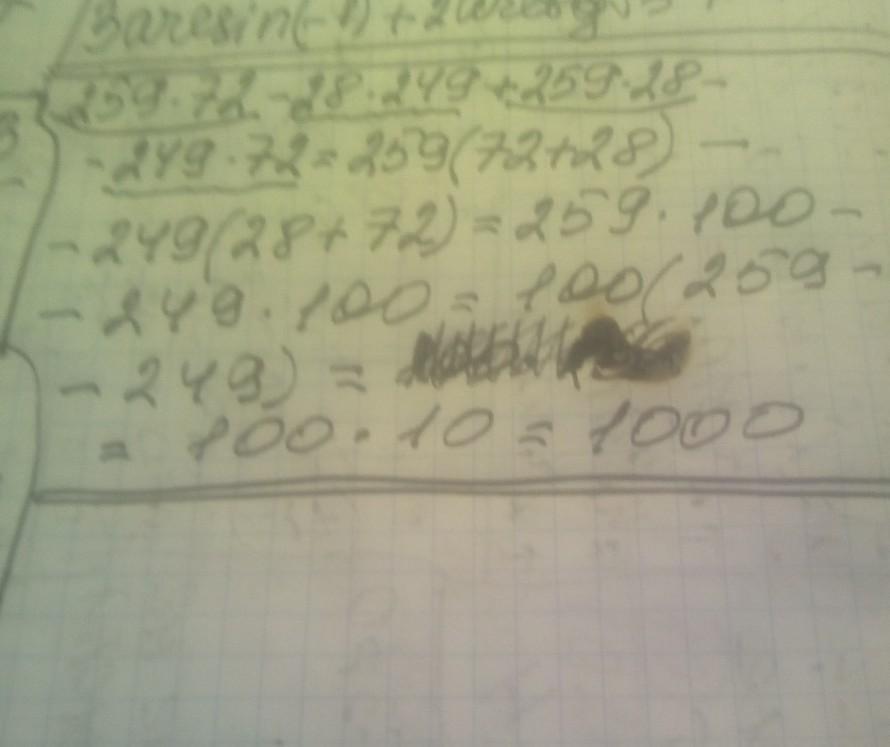 3arcsin(-1) + 2
259·72 - 28·249 + 259·28 -
- 249·72 = 259(72+28) -
- 249(28+72) = 259·100 -
- 249·100 = 100(259 -
- 249) =
= 100·10 = 1000